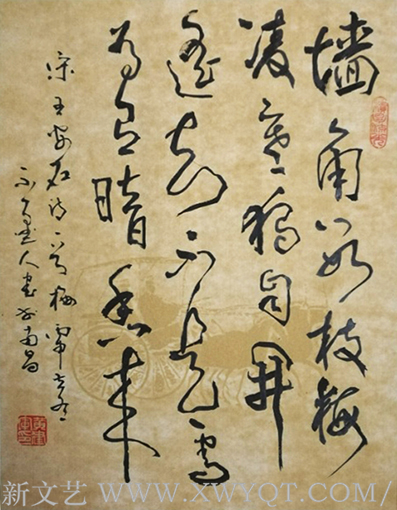 墙角数枝梅
凌寒独自开
遥知不是雪
为有暗香来
宋王安石诗一首梅
人书于南昌
新文艺 WWW.XWYQT.COM/